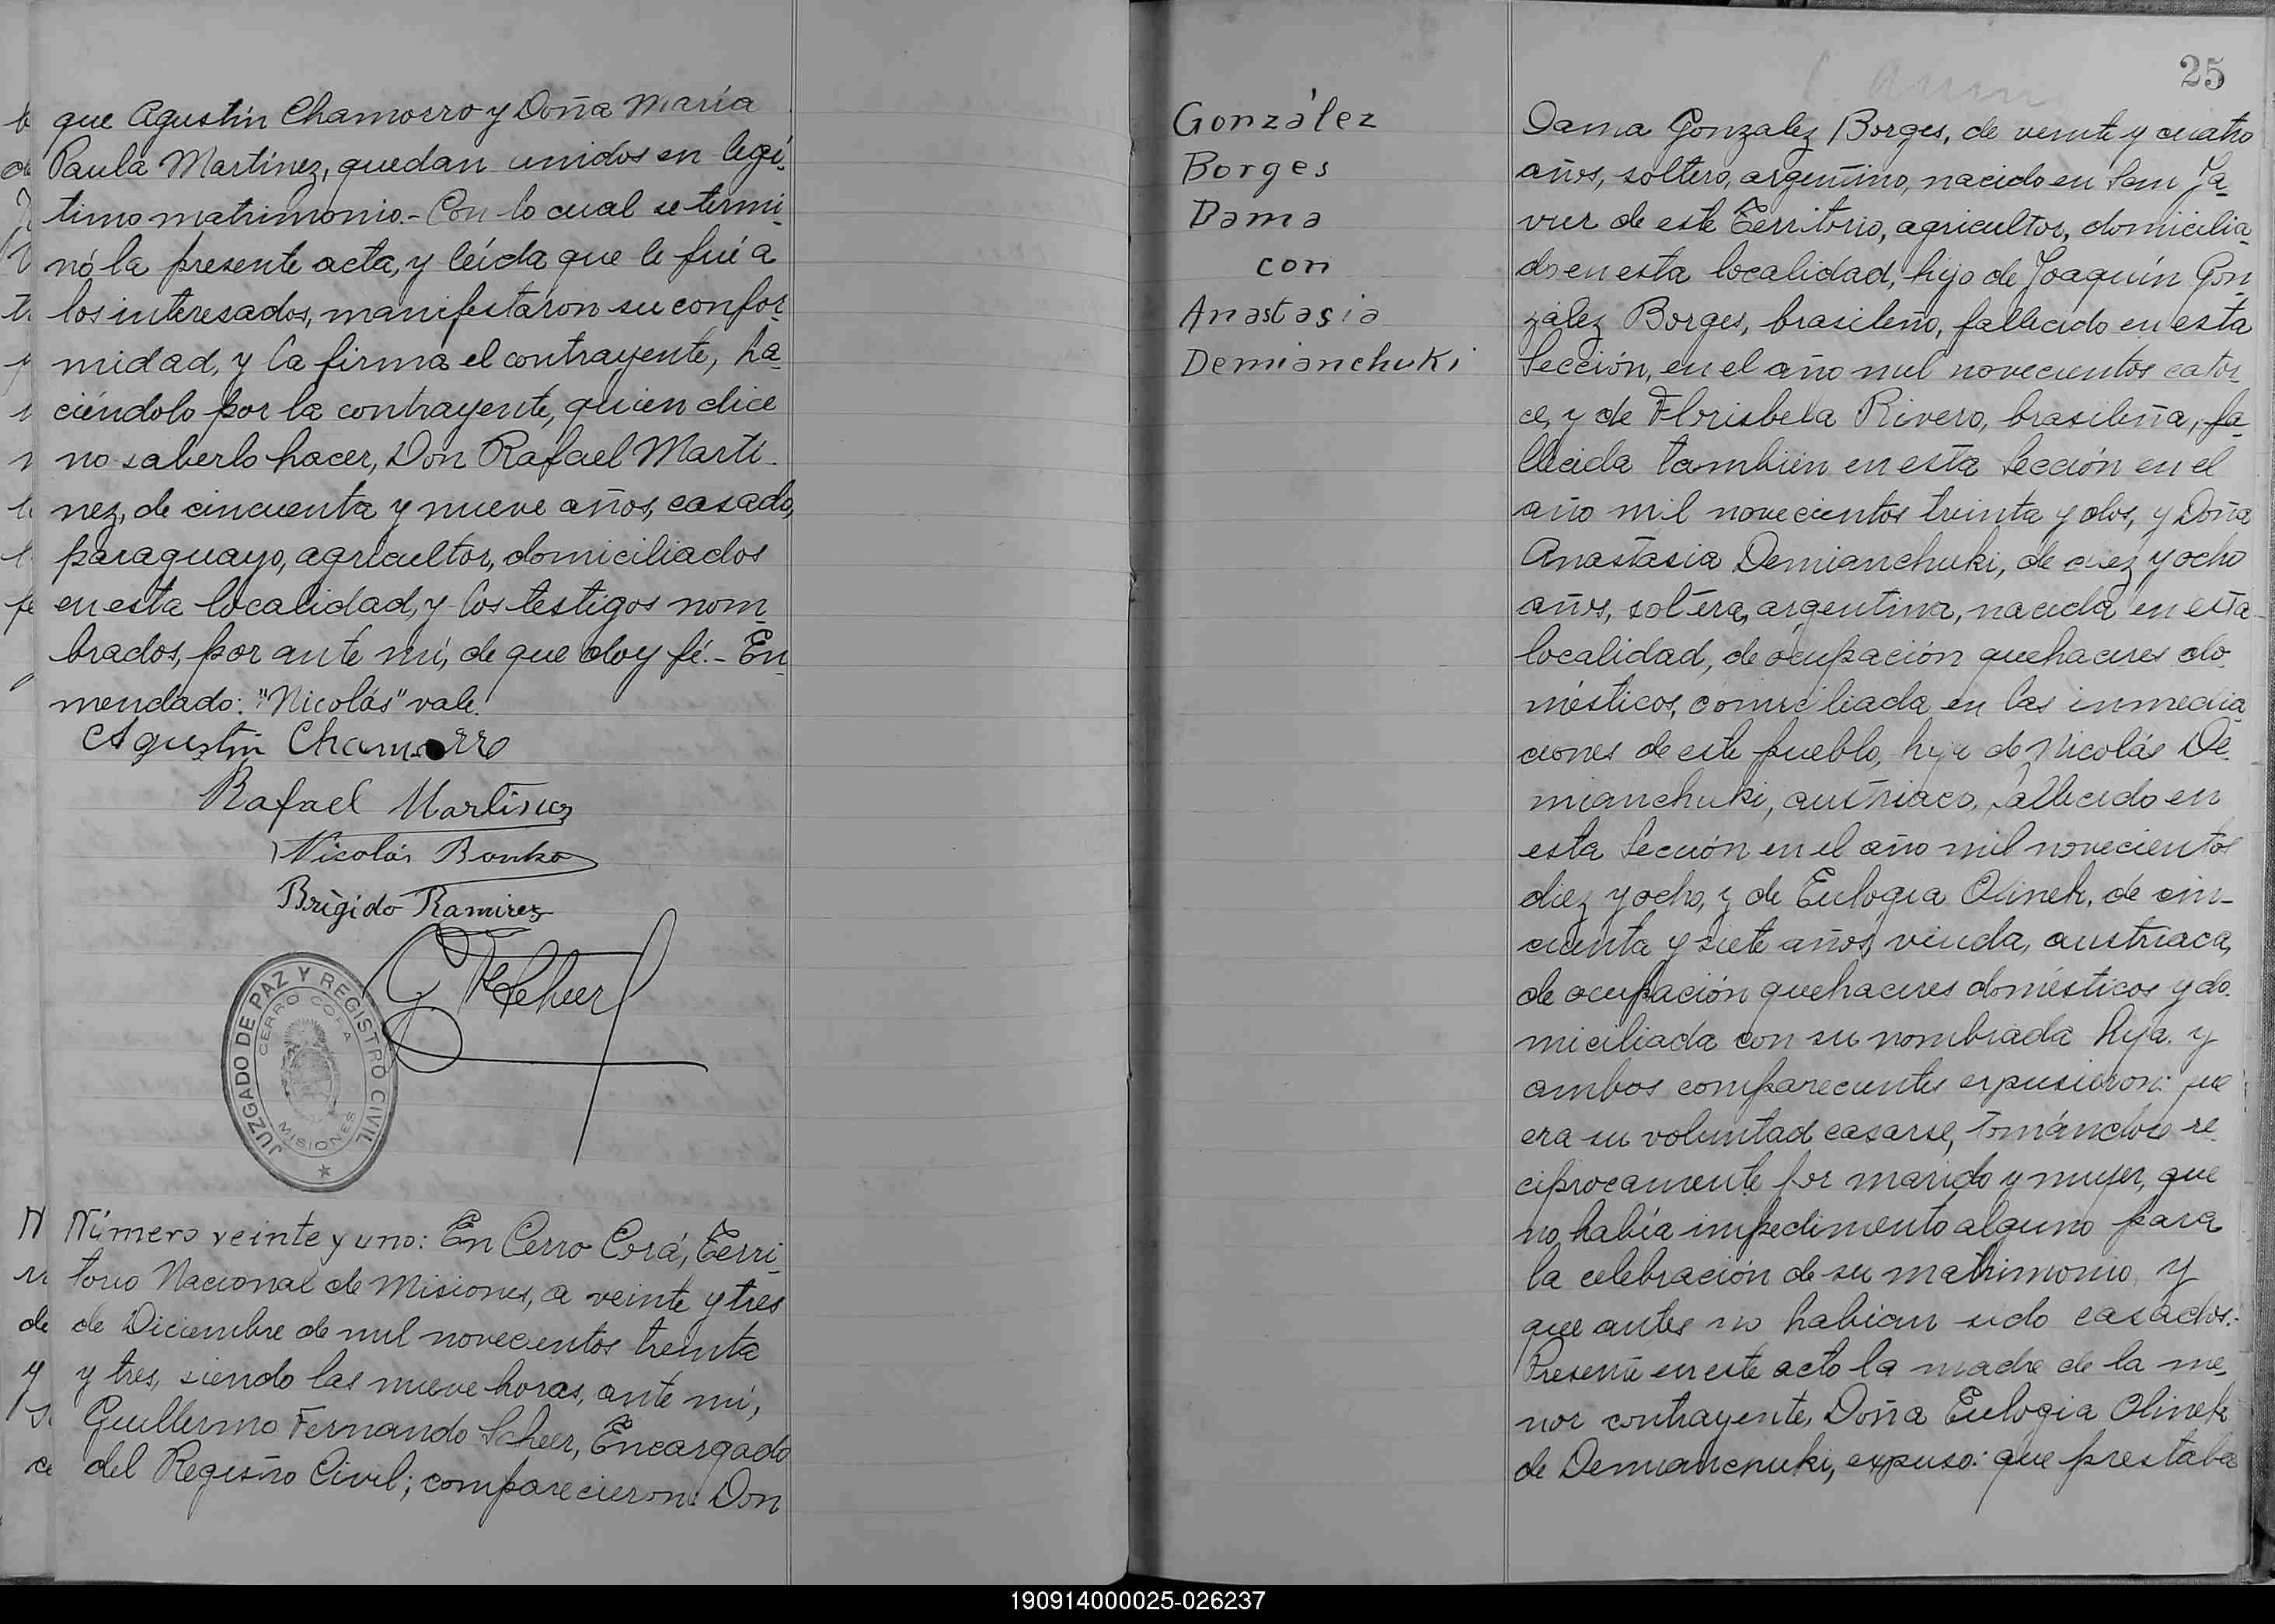 que Agustín Chamorro y Doña María
Paula Martínez, quedan unidos en legí-
timo matrimonio.- Con lo cual se termi-
nó la presente acta, y leída que le fué a
los interesados, manifestaron su confor-
midad, y la firma el contrayente, ha-
ciéndolo por la contrayente, quien dice
no saberlo hacer, Don Rafael Martí-
nez, de cincuenta y nueve años, casado,
paraguayo, agricultor, domiciliados
en esta localidad, y los testigos nom-
brados, por ante mí, de que doy fé.- En-
mendado: "Nicolás" vale.
Agustín Chamorro
Rafael Martinez
Nicolás Bonko
Brígido Ramirez
G F Scheer
JUZGADO DE PAZ Y REGISTRO CIVIL
CERRO CORA
MISIONES
Número veinte y uno: En Cerro Corá, Terri-
torio Nacional de Misiones, a veinte y tres
de Diciembre de mil novecientos treinta
y tres, siendo las nueve horas, ante mí,
Guillermo Fernando Scheer, Encargado
del Registro Civil; comparecieron: Don
25
González
Borges
Dama
con
Anastasia
Demianchuki
Dama Gonzalez Borges, de veinte y cuatro
años, soltero, argentino, nacido en San Ja-
vier de este Territorio, agricultor, domicilia-
do en esta localidad, hijo de Joaquín Gon-
zález Borges, brasileño, fallecido en esta
Sección, en el año mil novecientos cator-
ce, y de Florisbela Rivero, brasileña, fa-
llecida también en esta Sección en el
año mil novecientos treinta y dos, y Doña
Anastasia Demianchuki, de diez y ocho
años, soltera, argentina, nacida en esta
localidad, de ocupación quehaceres do-
mésticos, domiciliada en las inmedia-
ciones de este pueblo, hija de Nicolás De-
mianchuki, austriaco, fallecido en
esta Sección en el año mil novecientos
diez y ocho, y de Eulogia Olinek, de cin-
cuenta y siete años, viuda, austriaca,
de ocupación quehaceres domésticos y do-
miciliada con su nombrada hija. y
ambos comparecientes expusieron: que
era su voluntad casarse, tomándose re-
ciprocamente por marido y mujer, que
no había impedimento alguno para
la celebración de su matrimonio, y
que antes no habian sido casados.-
Presente en este acto la madre de la me-
nor contrayente, Doña Eulogia Olinek
de Demianchuki, expuso: que prestaba
190914000025-026237